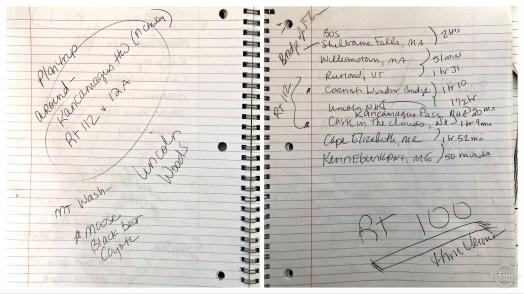 Plan trip
around -
Kancamagus HW
Rt 112 & 12A
Lincoln
Woods
Mt Wash-
Moose
Black bear
Coyote
BOS
Shelburne Falls, MA
2 HRS
Williamstown, MA
51 min
Rutland, VT
1 hr 31
Cornish Windsor Bridge
1 hr 10
Lincoln NH
1 1/2 hr
Kancamagus Pass, NH
20 min
in the Clouds, NH
1 hr
Cape Elizabeth, ME
1 hr 52 min
Kennebunkport, ME
50 minutes
Rt 112
Rt 100
thru